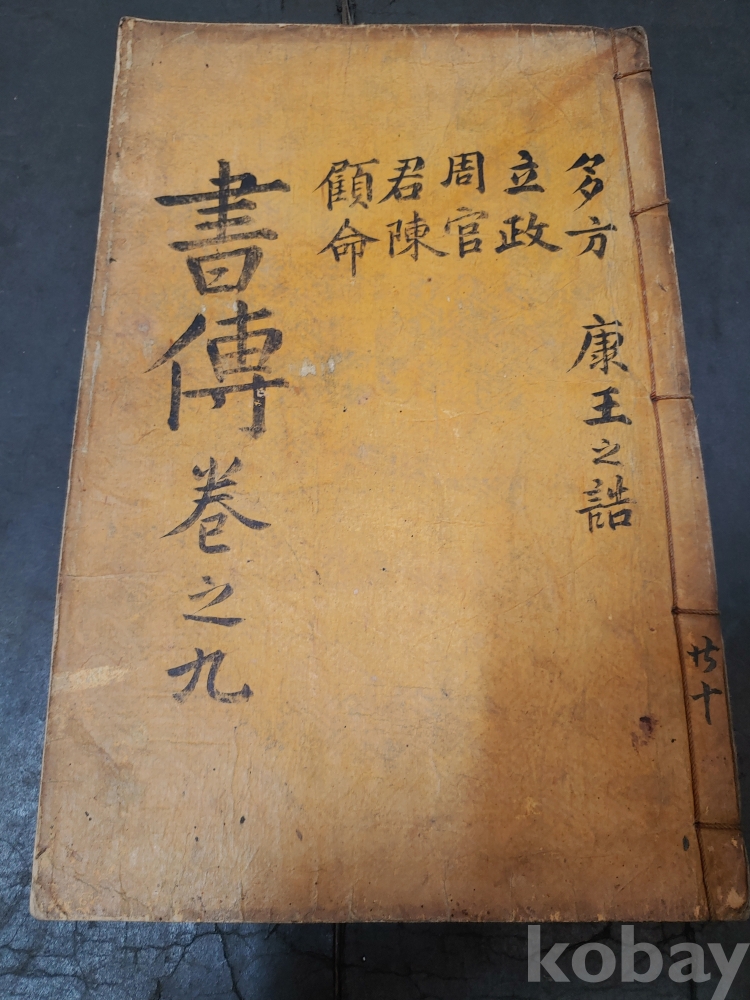 多方
康王之誥
立政
周官
君陳
顧命
書傳卷之九
共十
kobay